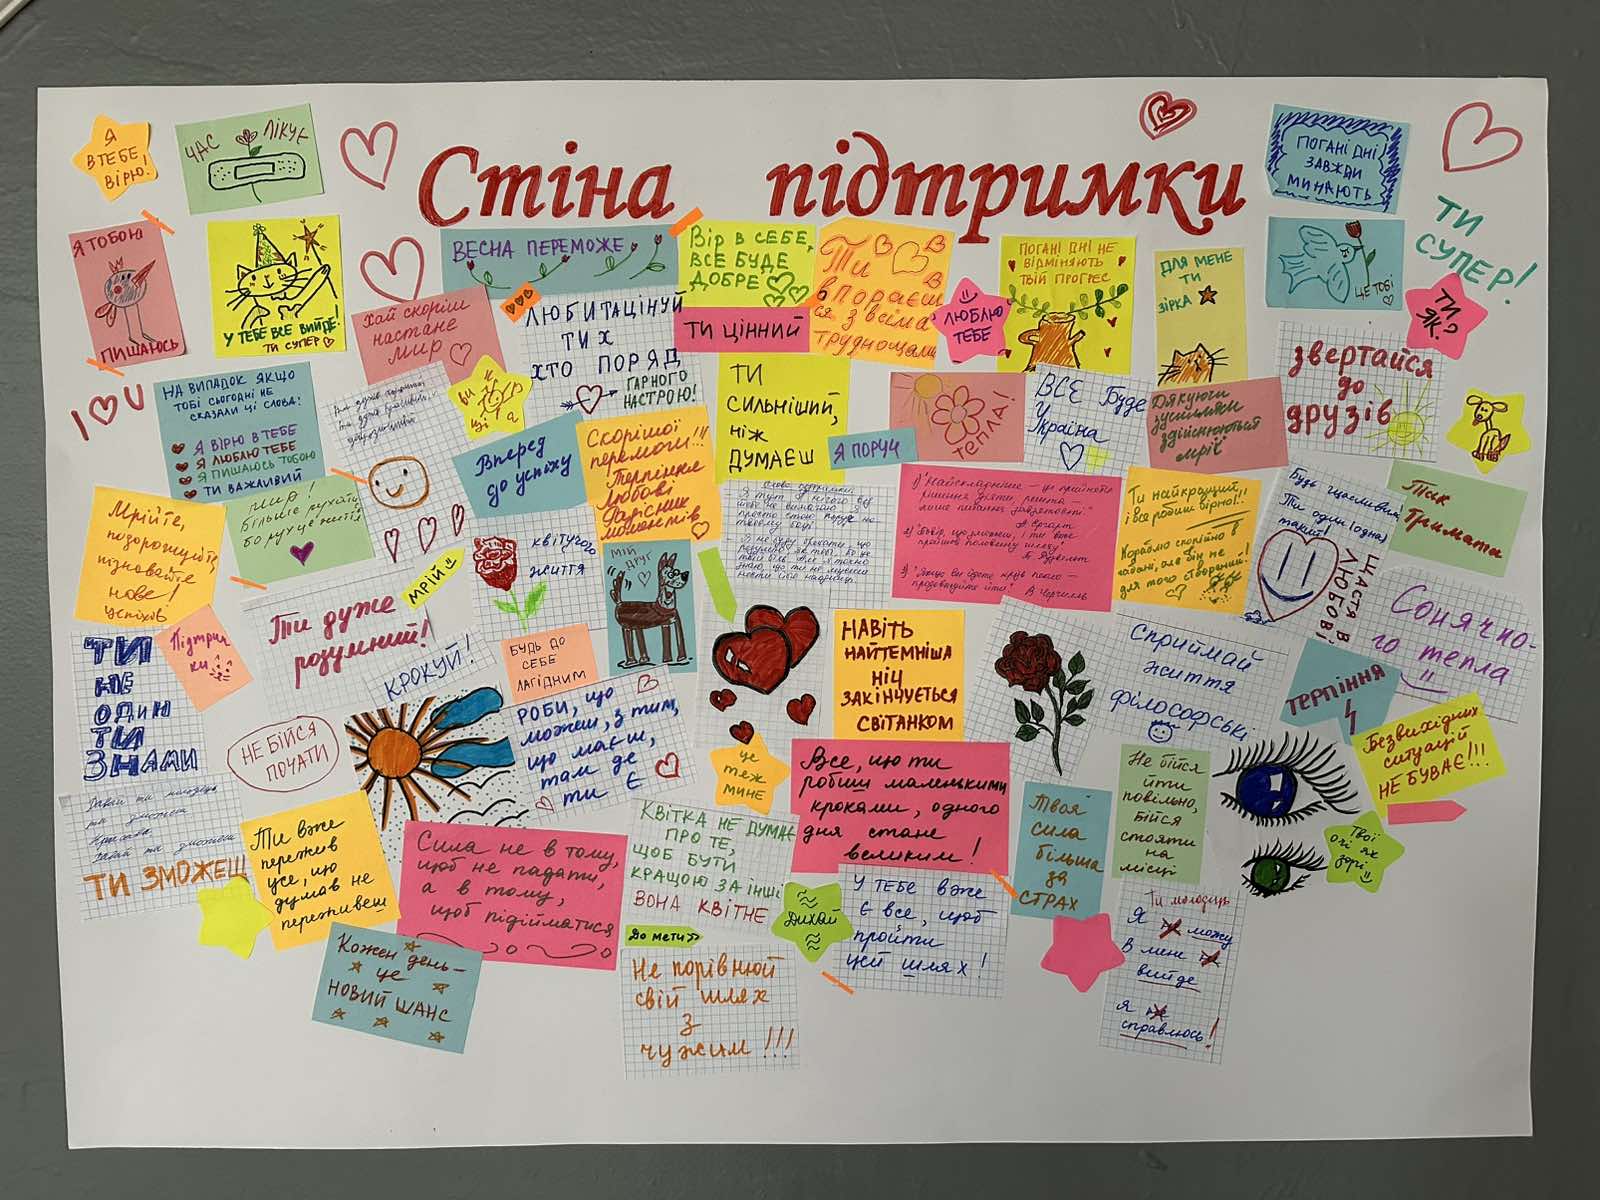 Стіна підтримки
Я
В ТЕБЕ
ВІРЮ!
ЧАС ЛІКУЄ
ПОГАНІ ДНІ
ЗАВЖДИ
МИНАЮТЬ
ТИ
СУПЕР!
Я ТОБОЮ
ПИШАЮСЬ
У ТЕБЕ ВСЕ ВИЙДЕ!
ТИ СУПЕР
ВЕСНА ПЕРЕМОЖЕ
Вір В СЕБЕ,
ВСЕ БУДЕ
ДОБРЕ
ТИ ЦІННИЙ
Ти
впораєш
ся з всіма
труднощами
ЛЮБЛЮ
ТЕБЕ
ПОГАНІ ДНІ НЕ
ВІДМІНЯЮТЬ
ТВІЙ ПРОГРЕС
ДЛЯ МЕНЕ
ТИ
ЗІРКА
ЦЕ ТОБІ
ТИ
ЯК?
Хай скоріш
настане
мир
ЛЮБИ ТА ЦІНУЙ
ТИХ
ХТО ПОРЯД
ГАРНОГО
НАСТРОЮ!
звертайся
до
друзів
I U
НА ВИПАДОК ЯКЩО
ТОБІ СЬОГОДНІ НЕ
СКАЗАЛИ ЦІ СЛОВА:
Я ВІРЮ В ТЕБЕ
Я ЛЮБЛЮ ТЕБЕ
Я ПИШАЮСЬ ТОБОЮ
ТИ ВАЖЛИВИЙ
Вперед
до успіху
Скорішої
перемоги!!!
Терпіння
Любові
Гарісних
моментів
ТИ
СИЛЬНІШИЙ,
НІЖ
ДУМАЄШ
Я ПОРУЧ
ТЕПЛА!
ВСЕ Буде
Україна
Дякуючи
зусиллям
здійснюються
мрії
Мрійте,
подорожуйте,
пізнавайте
нове!
успіхов
Мир!
Більше рухайтесь,
бо рух це життя
МРІЙ
квітучого
життя
МІЙ
ДРУГ
Слова підтримки.
1) "Найскладніше – це прийняти
рішення діяти, решта –
лише питання завзятості."
А. Ергарт
2) "Повір, що можеш, і ти вже
пройшов половину шляху."
Т. Рузвельт
3) "Якщо ви йдете крізь пекло –
продовжуйте йти."
В. Черчилль
Ти найкращий!!!
і все робиш вірно!!
Кораблю спокійно в
гавані, але він не
для того створений!
Будь щасливим!
Ти один (одна)
такий!
ЩАСТЯ В
ЛЮБОВІ
Так
тримати
Сонячно-
го тепла
ТИ
НЕ
ОДИН
ТИ
З НАМИ
Підтрим
ки
Ти дуже
розумний!
КРОКУЙ!
БУДЬ ДО
СЕБЕ
ЛАГІДНИМ
НАВІТЬ
НАЙТЕМНІША
НІЧ
ЗАКІНЧУЄТЬСЯ
СВІТАНКОМ
Сприймай
життя
філософські
ТЕРПІННЯ
Безвихідних
ситуацій
НЕ БУВАЄ!!!
НЕ БІЙСЯ
ПОЧАТИ
РОБИ, що
можеш, з тим,
що маєш,
там де
ти Є
це
теж
мине
Все, що ти
робиш маленькими
кроками, одного
дня стане
великим!
Твоя
сила
більша
за
СТРАХ
Не бійся
йти
повільно,
бійся
стояти
на
місці
Твої
очі як
зорі
ТИ ЗМОЖЕШ
Ти вже
пережив
усе, що
думав не
переживеш
Сила не в тому,
щоб не падати,
а в тому,
щоб підійматися
КВІТКА НЕ ДУМАЄ
ПРО ТЕ,
ЩОБ БУТИ
КРАЩОЮ ЗА ІНШІ
ВОНА КВІТНЕ
До мети
ДИХАЙ
У ТЕБЕ вже
Є все, щоб
пройти
цей шлях!
Ти молодець
Я не можу
В мене не
вийде
Я не
справлюсь!
Кожен день –
це
НОВИЙ ШАНС
Не порівнюй
свій шлях
з
чужим!!!